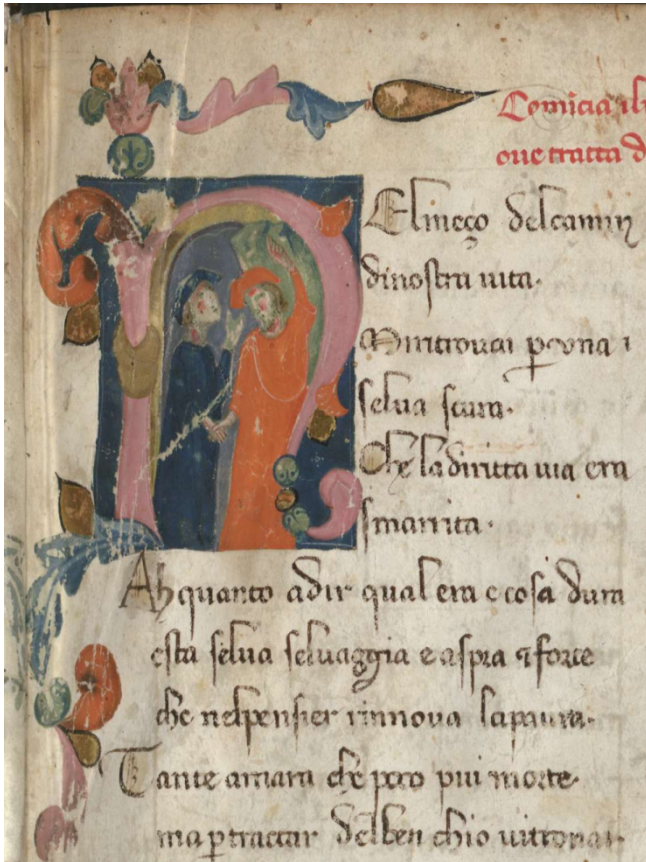 Comicia il
oue tracta d
NElmeço delcamin
dinostra uita.
Mi ritrouai p una
selua scura.
Che ladiritta uia era
smarrita.
Ah quanto adir qual era e cosa dura
esta selua seluaggia e aspra & forte
che nelpensier rinnoua lapaura.
Tante amara che poco piu morte.
ma p tractar delben chio uitrouai.